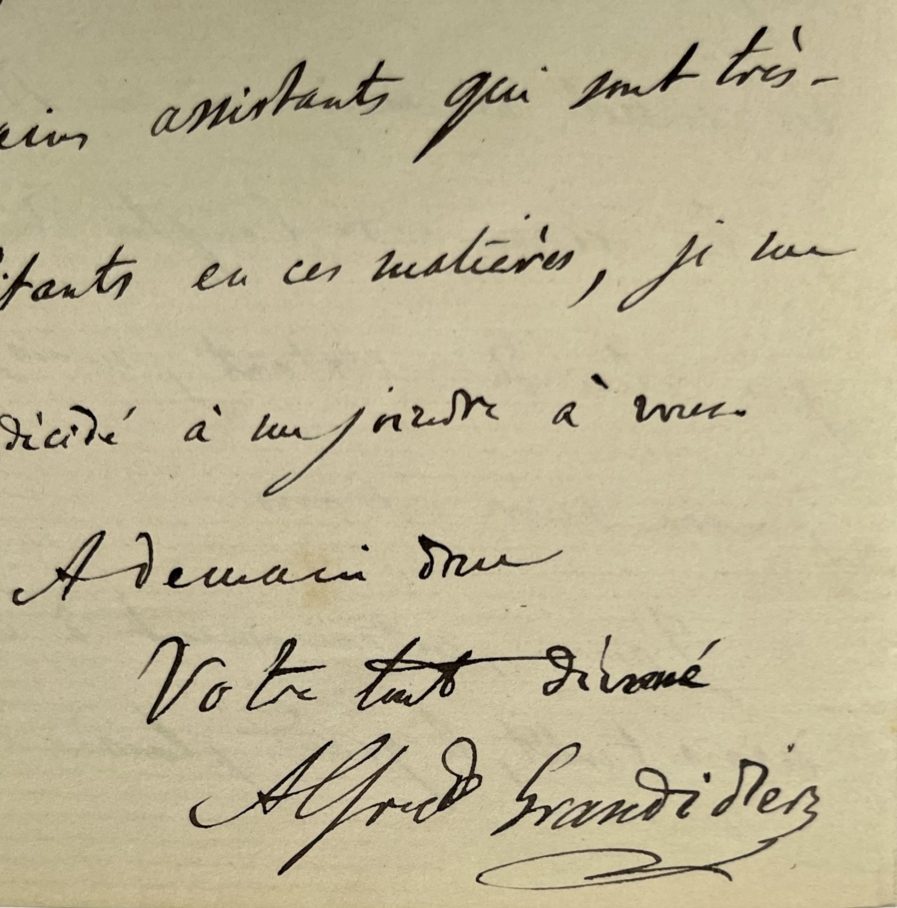 assistants qui sont très-
en ces matières, je me
décidé à me joindre à vous.
A demain donc
Votre tout dévoué
Alfred Grandidier